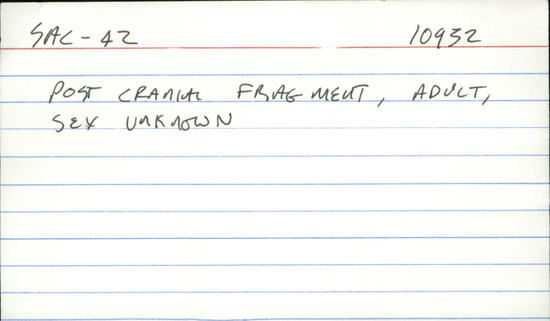 SAC-42 10932
POST CRANIAL FRAGMENT, ADULT,
SEX UNKNOWN